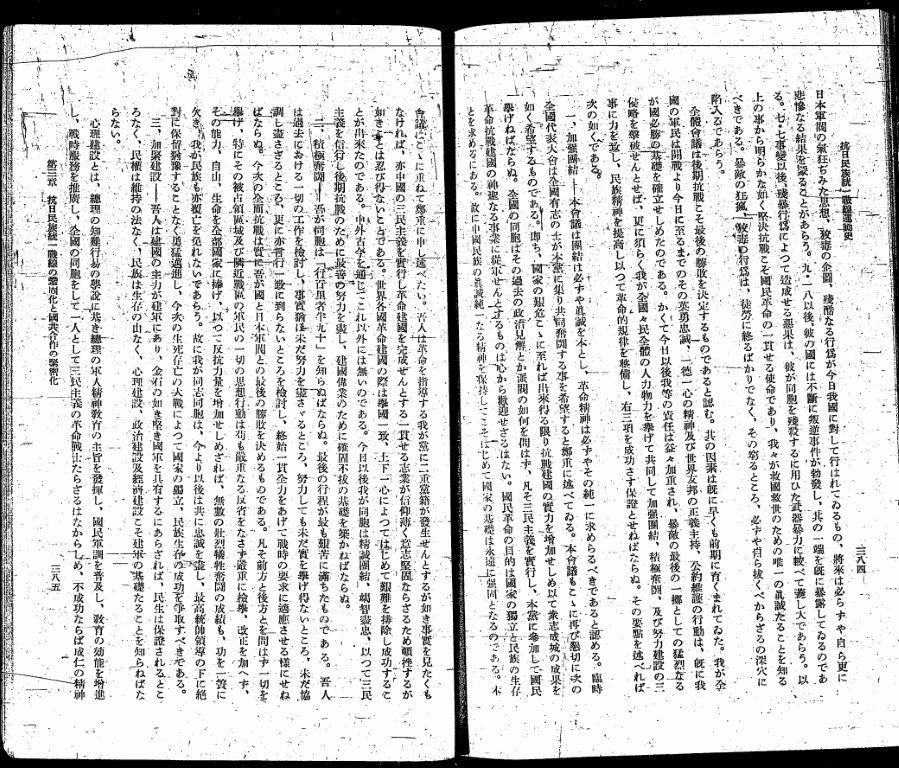 抗日民族統一戰線運動史
三八四
日本軍閥の氣狂じみた思想、狡毒の企圖、殘酷なる行爲が今日我國に對して行はれてゐるもの、將來は必らずや自ら更に
悲慘なる結果を蒙ることがあらう。九・一八以後、彼の國には不斷に叛逆事件が勃發し、其の一端を既に暴露してゐるのであ
る。七・七事變以後、殘暴行爲によつて造成せる惡果は、彼が同胞を殘殺するに用ひた武器暴力に較べて遙し大であらう。以
上の事から明らかな如く堅決抗戰こそ國民革命の一貫せる使命であり、我々が救國救世のための唯一の眞誠たることを知る
べきである。暴敵の狂瘋、狡毒の行爲は、徒勞に終るばかりでなく、その窮るところ、必ずや自ら拔くべからざるの深穴に
陷入るであらう。
全體會議は後期抗戰こそ最後の勝敗を決定するものであると認む。其の因素は既に早くも前期に育くまれてゐた。我が全
國の軍民は開戰より今日に至るまでのその英勇忠誠、一德一心の精神及び世界友邦の正義主持、公約維護の行動は、既に我
が國必勝の基礎を確立せしめたのである。かくて今日以後我等の責任は益々加重され、暴敵の最後の一擲としての猛烈なる
侵略を擊破せんとせば、更に須らく我が全國々民全體の人力物力を擧げて共同して加强團結、積極奮鬪、及び努力建設の三
事に力を致し、民族精神を提高し以つて革命的規律を維備し、右三項を成功さす保證とせねばならぬ。その要點を述べれば
次の如くである。
一、加强團結――本會議は團結は必ずや眞誠を本とし、革命精神は必ずやその純一に求めらるべきであると認める。臨時
全國代表大會は全國有志の士が本黨に集り共同奮鬪する事を希望すると鄭重に述べてゐる。本會議もこゝに再び懇切に次の
如く希望するものである。即ち、國家の艱危こゝに至れば出來得る限り抗戰建國の實力を增加せしめ以て衆志成城の成果を
擧げねばならぬ。全國の同胞はその過去の政治見解とか派閥の如何を問はず、凡そ三民主義を實行し、本黨に參加して國民
革命抗戰建國の神聖なる事業に從軍せんとするものは心から歡迎せざるはない。國民革命の目的は國家の獨立と民族の生存
とを求めるにある。故に中國民族の眞誠純一なる精神を保持してこそはじめて國家の基礎は永遠に强固となるのである。本
會議はこゝに重ねて鄭重に申し述べたい。吾人は革命を指導する我が黨に二重黨籍が發生せんとするが如き事實を見たくも
なければ、亦中國の三民主義を實行し革命建國を完成せんとする一貫せる志業が信仰薄く意志堅固ならざるため頓挫するが
如きことは忍び得ないことである。世界各國革命建國の際は擧國一致、上下一心によつてはじめて艱難を排除し成功するこ
とが出來たのである。中外古今を通じてこれ以外には無いのである。今日以後我が同胞は精誠團結、竭智盡忠、以つて三民
主義を信行し後期抗戰のために最善の努力を盡し、建國偉業のために確固不拔の基礎を築かねばならぬ。
二、積極奮鬪――吾が同胞は「行百里者半九十」を知らねばならぬ。最後の行程が最も艱苦に滿ちたものである。吾人
は過去における一切の工作を檢討し、事實猶ほ未だ努力を盡さゞるところ、努力しても未だ實を擧げ得ないところ、未だ協
調し盡さざるところ、更に亦言行一致に到らないところを檢討し、終始一貫全力をあげて戰時の要求に適應させる樣にせね
ばならぬ。今次の全面抗戰は實に吾が國と日本軍閥との最後の勝敗を決めるものである。凡そ前方と後方とを問はず一切を
擧げ、特にその被占領區域及び隣近戰區の軍民の一切の思想行動は苟も嚴重なる反省をなさず嚴重に檢擧、改正を加へず、
その能力、自由、生命を全部國家に捧げ、以つて反抗力量を增加せしめざれば、無數の壯烈犧牲奮鬪の成績も、功を一簣に
欠き、我が民族も亦覆亡を免れないであらう。故に我が同志同胞は、今より以後は共に忠誠を盡し、最高統帥領導の下に絕
對に保留猶豫することなく勇猛邁進し、今次の生死存亡の大戰によつて國家の獨立、民族生存の成功を爭取すべきである。
三、加緊建設――吾人は建國の主力が建軍にあり、金石の如き堅き國軍を具有するにあらざれば、民生は保證されるとこ
ろなく、民權は維持の途なく、民族は生存の由なく、心理建設、政治建設及經濟建設こそ建軍の基礎たることを知らねばな
らない。
心理建設とは、總理の知難行易の學說に基き總理の軍人精神敎育の主旨を發揮し、國民軍訓を普及し、敎育の効能を增進
し、戰時服務を推廣し、全國の同胞をして一人として三民主義の革命戰士たらざるはなからしめ、不成功ならば成仁の精神
第三章　抗日民族統一戰線の鞏固化と國共合作の緊密化
三八五